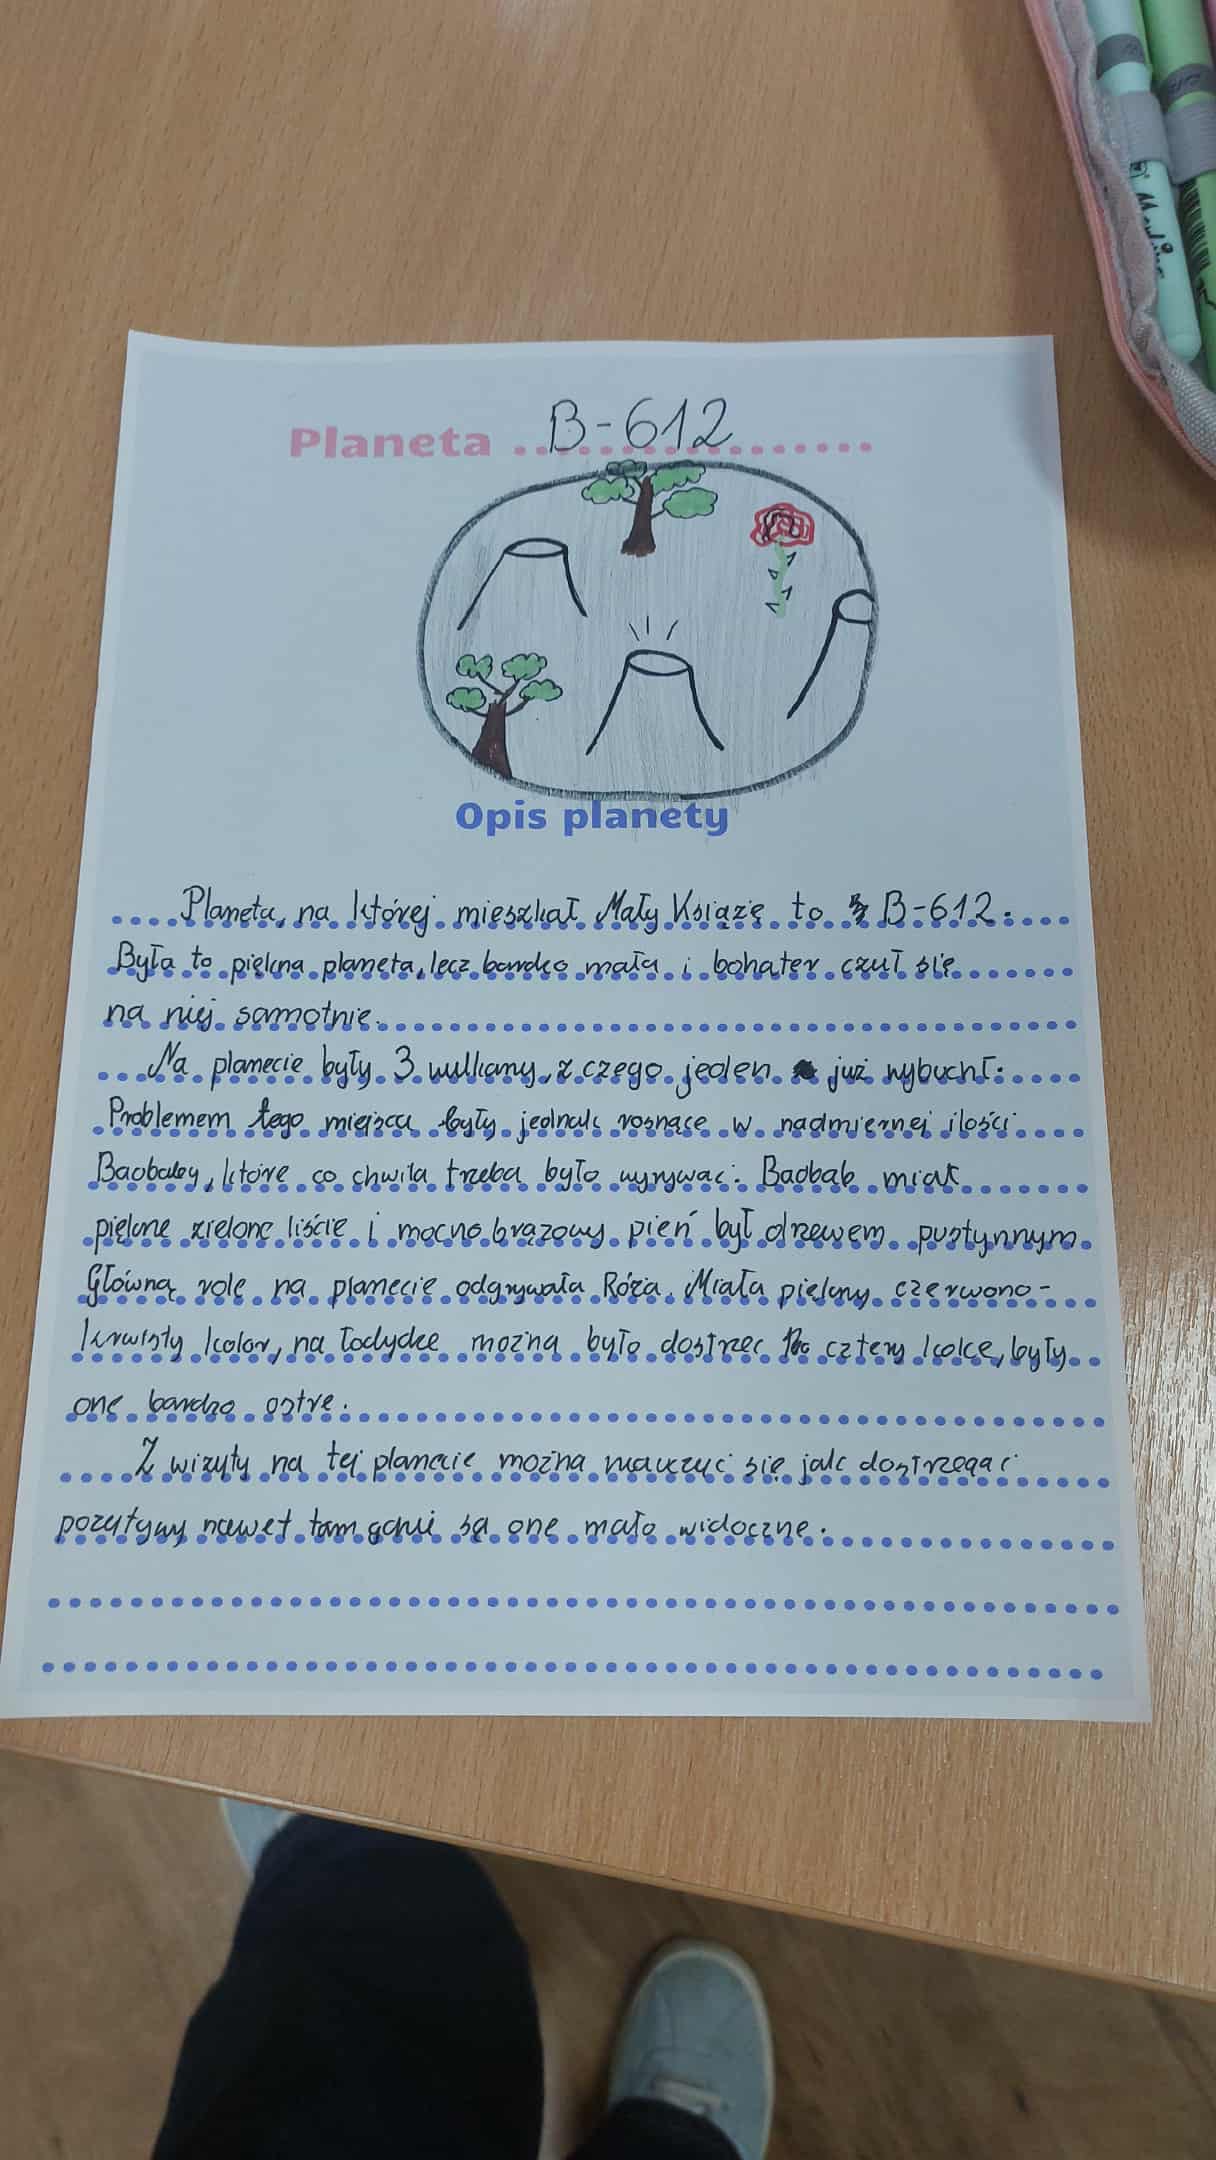 Planeta B-612
Opis planety
Planeta, na której mieszkał Mały Książę to B-612.
Była to piękna planeta, lecz bardzo mała i bohater czuł się
na niej samotnie.
Na planecie były 3 wulkany, z czego jeden już wybuchł.
Problemem tego miejsca były jednak rosnące w nadmiernej ilości
Baobaby, które co chwila trzeba było wyrywać. Baobab miał
piękne zielone liście i mocno brązowy pień był drzewem pustynnym.
Główną rolę na planecie odgrywała Róża. Miała piękny czerwono-
krwisty kolor, na łodydze można było dostrzec cztery kolce, były
one bardzo ostre.
Z wizyty na tej planecie można nauczyć się jak dostrzegać
pozytywy nawet tam gdzie są one mało widoczne.